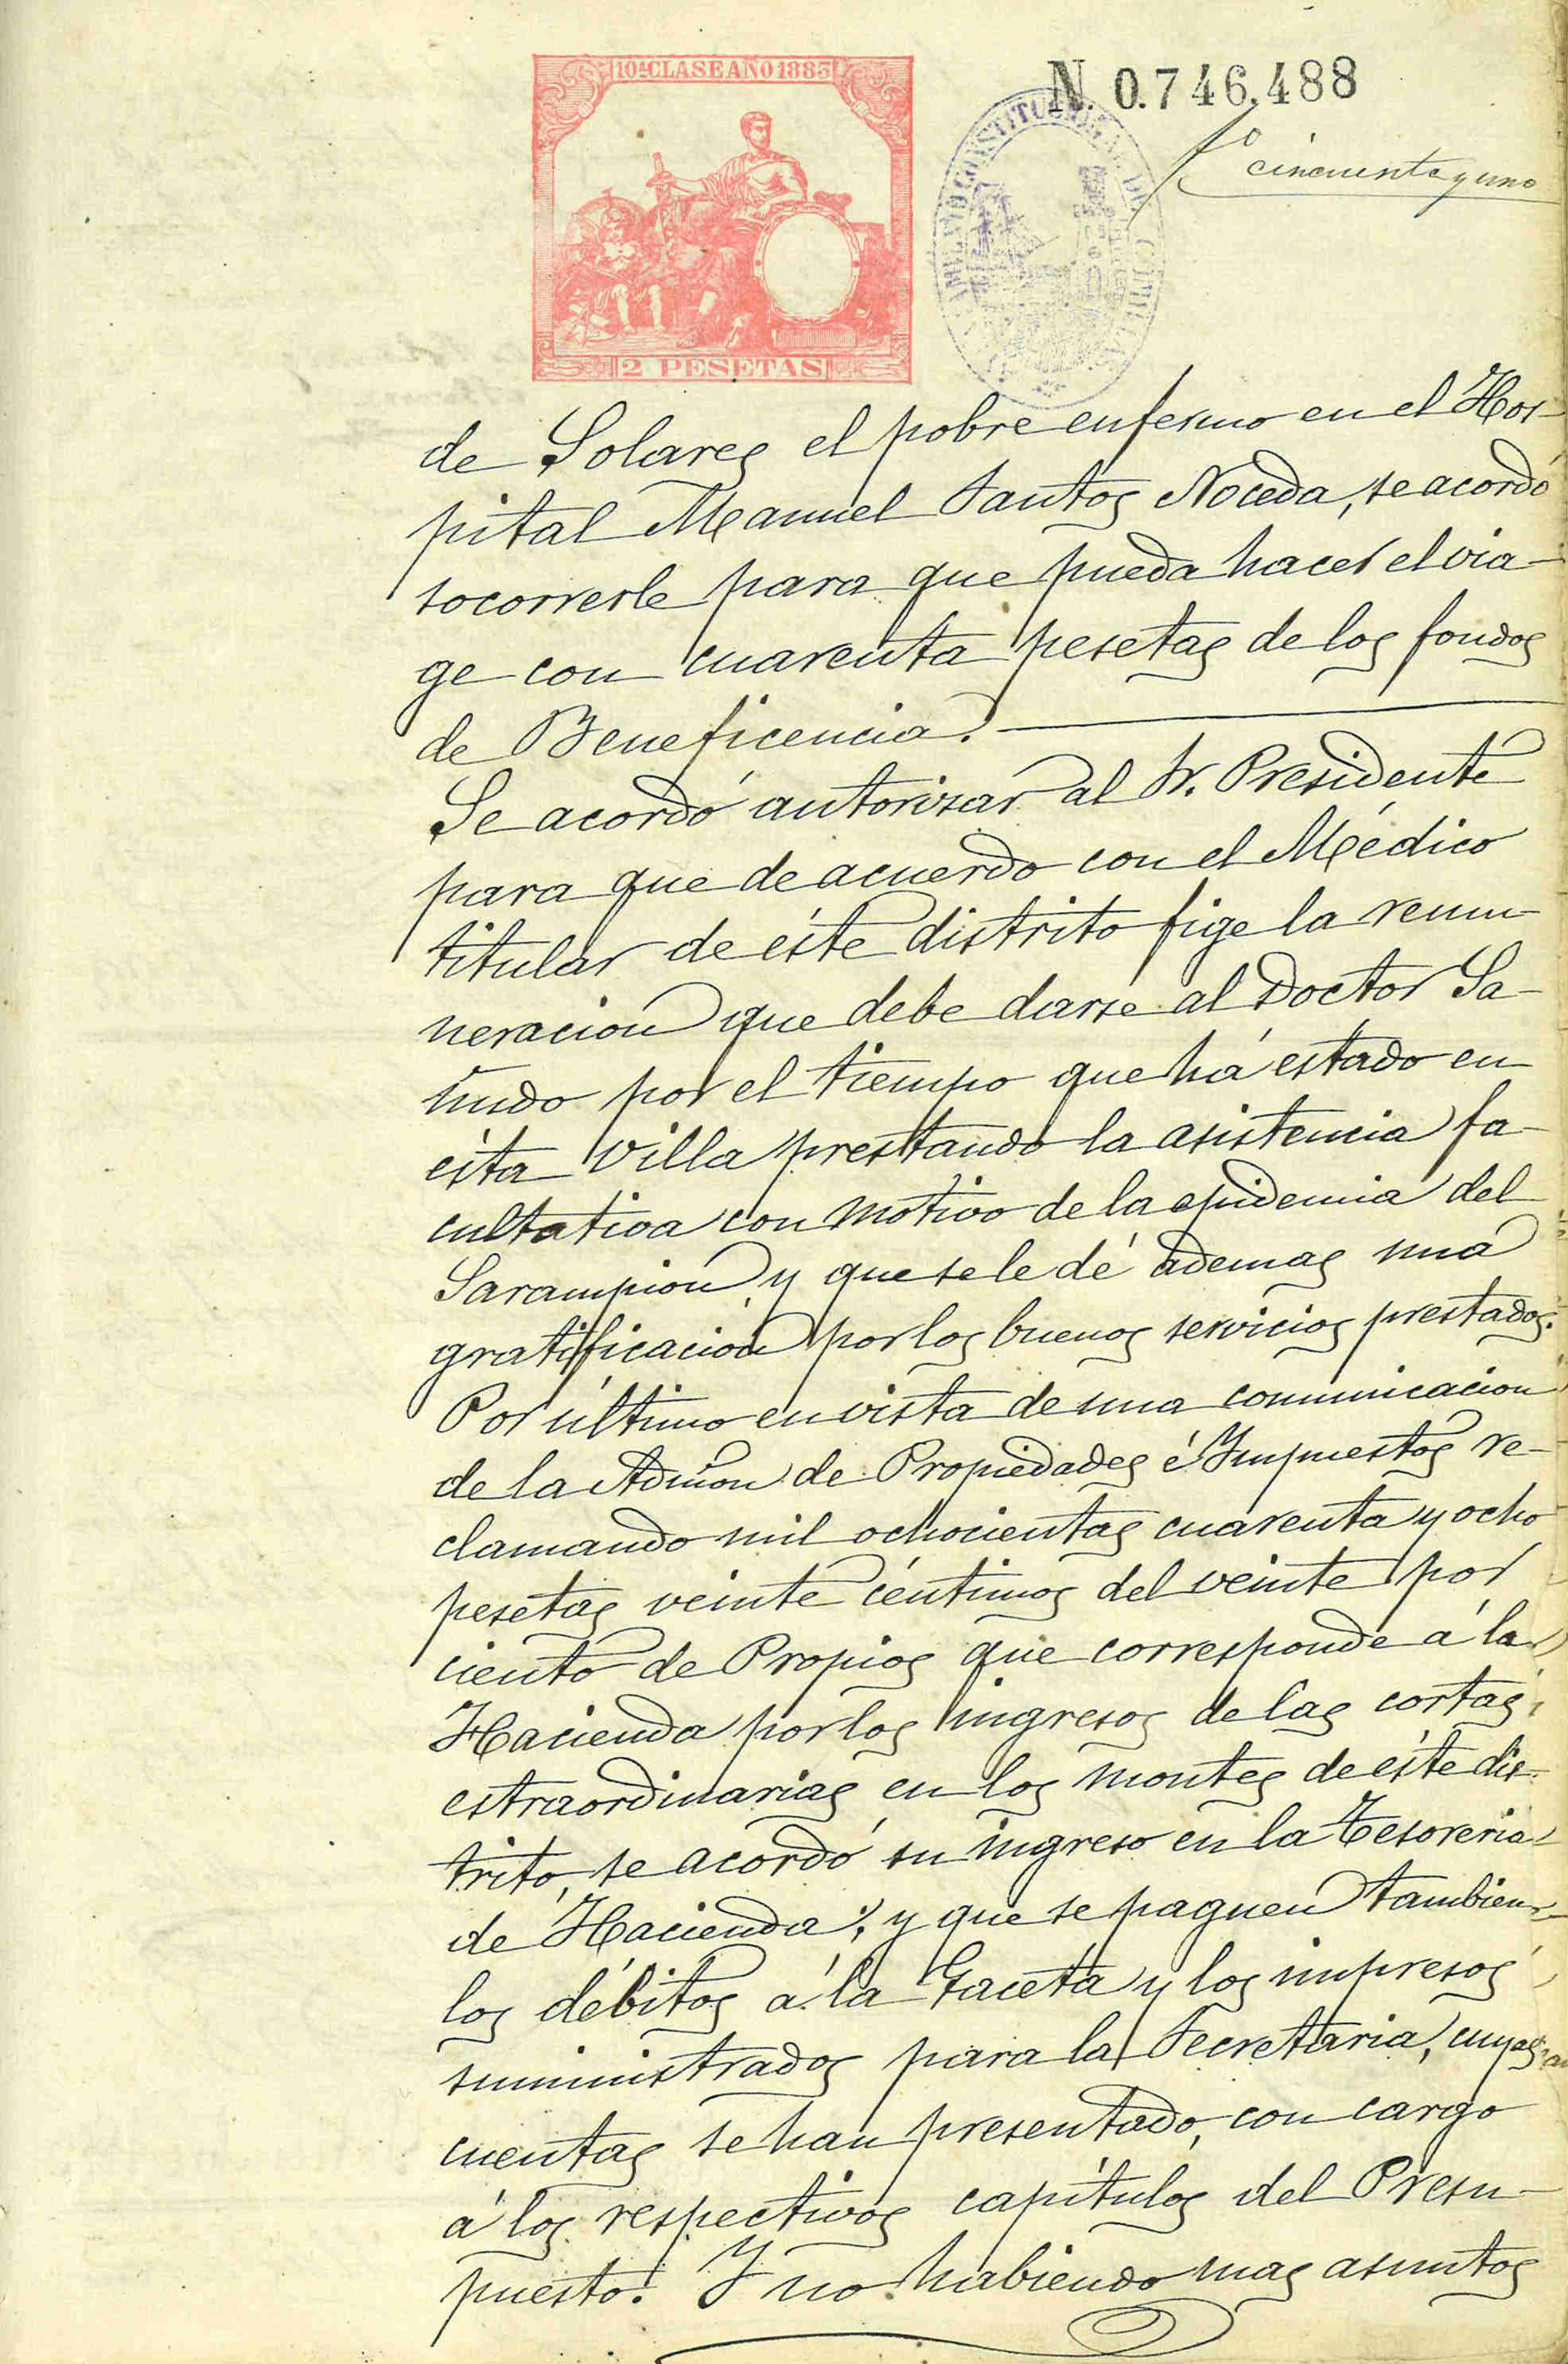 10ª CLASE AÑO 1883
N. 0.746,488
Fº cincuenta y uno
AYUNTAMIENTO CONSTITUCIONAL DE COMILLAS
2 PESETAS
de Solares el pobre enfermo en el Hos-
pital Manuel Santos Noceda, se acordó
socorrerle para que pueda hacer el via-
ge con cuarenta pesetas de los fondos
de Beneficencia.
Se acordó autorizar al Sr. Presidente
para que de acuerdo con el Médico
titular de éste distrito fige la remu-
neracion que debe darse al Doctor Sa-
ñudo por el tiempo que há estado en
ésta Villa prestando la asistencia fa-
cultativa con motivo de la epidemia del
Sarampion, y que se le dé ademas una
gratificacion por los buenos servicios prestados.
Por último en vista de una comunicacion
de la Admon de Propiedades é Impuestos re-
clamando mil ochocientas cuarenta y ocho
pesetas veinte céntimos del veinte por
ciento de Propios que corresponde á la
Hacienda por los ingresos de las cortas
estraordinarias en los montes de éste dis-
trito, se acordó su ingreso en la Tesoreria
de Hacienda; y que se paguen tambien
los débitos á la Gaceta y los impresos
suministrados para la Secretaria, cuyas
cuentas se han presentado, con cargo
á los respectivos capítulos del Presu-
puesto. Y no habiendo mas asuntos